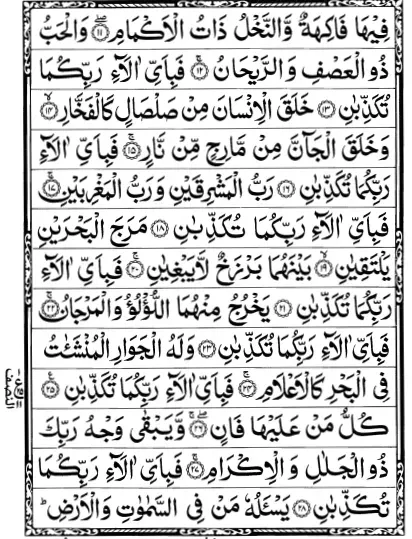 فِيْهَا فَاكِهَةٌ وَّالنَّخْلُ ذَاتُ الْاَكْمَامِ ۝۱۱ وَالْحَبُّ
ذُو الْعَصْفِ وَالرَّيْحَانُ ۝۱۲ فَبِاَيِّ اٰلَآءِ رَبِّكُمَا
تُكَذِّبٰنِ ۝۱۳ خَلَقَ الْاِنْسَانَ مِنْ صَلْصَالٍ كَالْفَخَّارِ ۝۱۴
وَخَلَقَ الْجَآنَّ مِنْ مَّارِجٍ مِّنْ نَّارٍ ۝۱۵ فَبِاَيِّ اٰلَآءِ
رَبِّكُمَا تُكَذِّبٰنِ ۝۱۶ رَبُّ الْمَشْرِقَيْنِ وَرَبُّ الْمَغْرِبَيْنِ ۝۱۷
فَبِاَيِّ اٰلَآءِ رَبِّكُمَا تُكَذِّبٰنِ ۝۱۸ مَرَجَ الْبَحْرَيْنِ
يَلْتَقِيٰنِ ۝۱۹ بَيْنَهُمَا بَرْزَخٌ لَّا يَبْغِيٰنِ ۝۲۰ فَبِاَيِّ اٰلَآءِ
رَبِّكُمَا تُكَذِّبٰنِ ۝۲۱ يَخْرُجُ مِنْهُمَا اللُّؤْلُؤُ وَالْمَرْجَانُ ۝۲۲
فَبِاَيِّ اٰلَآءِ رَبِّكُمَا تُكَذِّبٰنِ ۝۲۳ وَلَهُ الْجَوَارِ الْمُنْشَئٰتُ
فِى الْبَحْرِ كَالْاَعْلَامِ ۝۲۴ فَبِاَيِّ اٰلَآءِ رَبِّكُمَا تُكَذِّبٰنِ ۝۲۵
كُلُّ مَنْ عَلَيْهَا فَانٍ ۝۲۶ وَّيَبْقٰى وَجْهُ رَبِّكَ
ذُو الْجَلٰلِ وَالْاِكْرَامِ ۝۲۷ فَبِاَيِّ اٰلَآءِ رَبِّكُمَا
تُكَذِّبٰنِ ۝۲۸ يَسْـَٔلُهٗ مَنْ فِى السَّمٰوٰتِ وَالْاَرْضِ ؕ
النصف